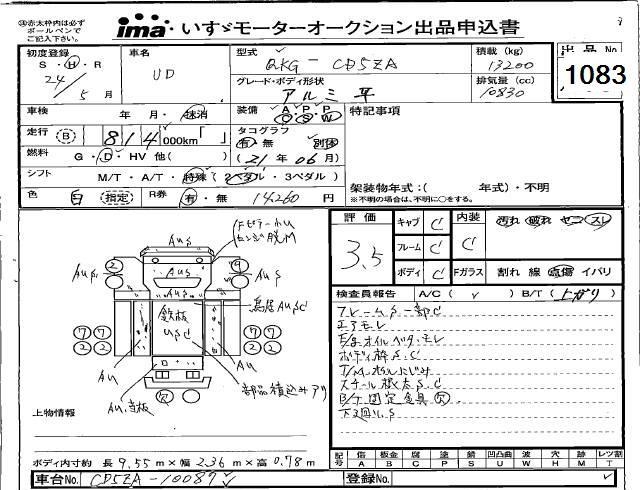 ㊟赤太枠内は必ず
ボールペンで
ご記入下さい。
ima いすゞモーターオークション出品申込書
初度登録 車名 型式 積載 (kg) 出品No
S・H・R UD QKG-CD5ZA 13200 1083
24/5月 グレード・ボディ形状 排気量 (cc)
アルミ平 10830
車検 年 月・抹消 装備 A P P 特記事項
C S W
走行 B 814,000km「 」 タコグラフ
有・無 別体
燃料 G・D・HV 他( ) (21年06月)
シフト M/T・A/T・特殊(2ペダル・3ペダル) 架装物年式:( 年式)・不明
色 白 (指定) R券 有・無 14260円 ※不明の場合は、不明に○をする。
評価 3.5 キャブ C 内装 C 汚れ 破れ ヤニ スレ
フレーム C
ボディ C Fガラス 割れ 線 飛傷 イバリ
検査員報告 A/C( ) B/T(上がり)
フレームS一部C
エアモレ
E/gオイルベタ・モレ
ボディ枠S.C
T/Mオイルにじみ
スチール根太S.C
B/T固定金具欠
下廻りS
AuS
AuS
AuS
AuS
鳥居AuSC
鉄板
USC
Au
Au
Au.寺板
部品積込みアリ
欠
上物情報
ボディ内寸約 長9.55m×幅2.36m×高0.78m
記号 傷 板金 腐 塗 錆 凹凸曲 波 穴 跡 レツ割
A B C P S U W H M T
車台No. CD5ZA-10087 登録No.